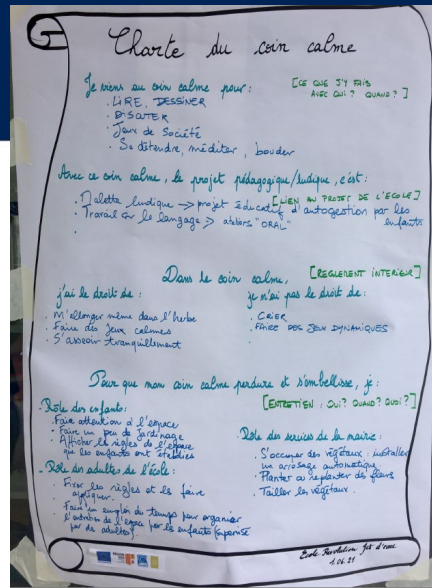 Charte du coin calme
Je viens au coin calme pour :
[CE QUE J'Y FAIS
AVEC QUI ? QUAND ?]
. LIRE, DESSINER
. DISCUTER
. Jeux de Société
. Se détendre, méditer, bouder
Avec ce coin calme, le projet pédagogique/ludique, c'est :
[LIEN AU PROJET DE L'ECOLE]
. Malette ludique → projet éducatif d'autogestion par les
enfants
. Travail sur le langage → ateliers "ORAL"
.
Dans le coin calme,
[REGLEMENT INTERIEUR]
j'ai le droit de :
. M'allonger même dans l'herbe
. Faire des jeux calmes
. S'asseoir tranquillement
je n'ai pas le droit de :
. CRIER
. FAIRE DES JEUX DYNAMIQUES
Pour que mon coin calme perdure et s'embellisse, je :
[ENTRETIEN : QUI ? QUAND ? QUOI ?]
- Rôle des enfants :
. Faire attention à l'espace
. Faire un peu de jardinage
. Afficher les règles de l'espace
que les enfants ont établies
- Rôle des adultes de l'école :
. Fixer les règles et les faire
appliquer.
. Faire un emploi du temps pour organiser
l'entretien de l'espace par les enfants (supervisé
par des adultes).
Rôle des services de la mairie :
. S'occuper des végétaux : installer
un arrosage automatique
. Planter ou replanter des fleurs
. Tailler les végétaux.
Ecole Revolution Jet d'eau
1.06.21